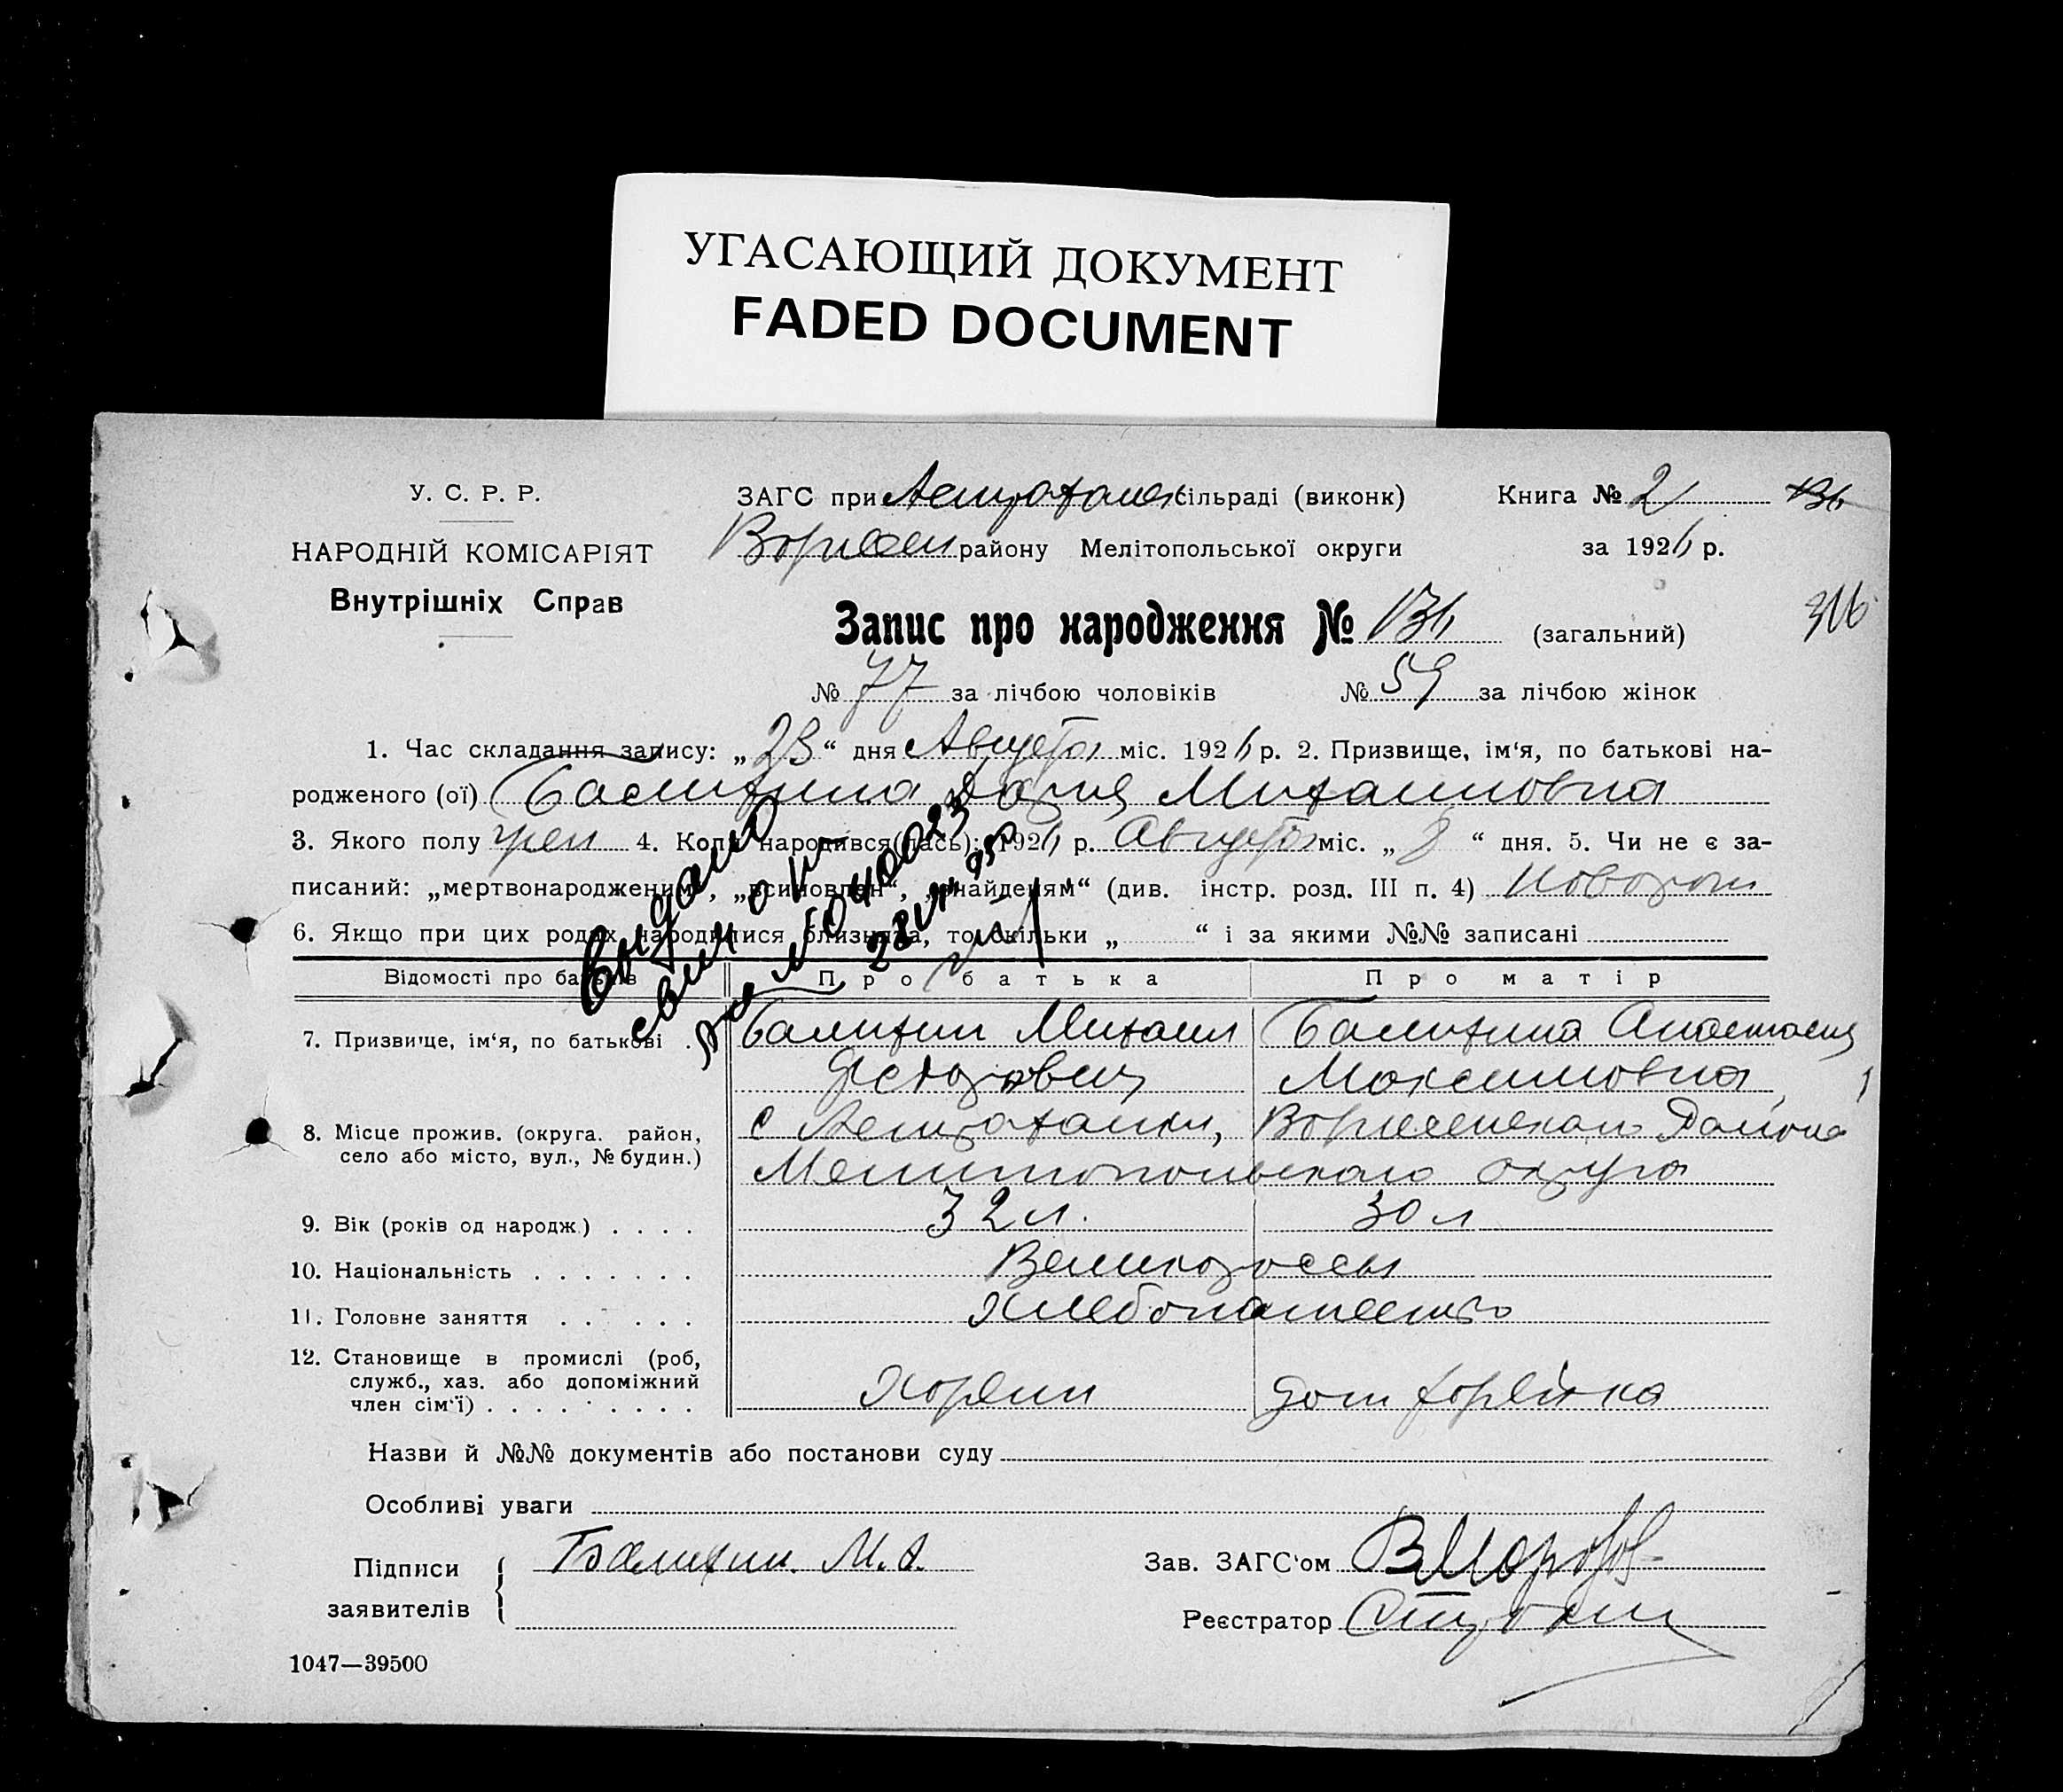 УГАСАЮЩИЙ ДОКУМЕНТ
FADED DOCUMENT
У. С. Р. Р.
НАРОДНІЙ КОМІСАРІЯТ
Внутрішніх Справ
ЗАГС при Астрахан сільраді (виконк)
району Мелітопольської округи
Книга № 2
за 1926 р.
136
316
Запис про народження № 136 (загальний)
№ 77 за лічбою чоловіків № 59 за лічбою жінок
1. Час складання запису: „23“ дня Августа міс. 1926 р. 2. Призвище, ім‘я, по батькові на-
родженого (ої) Балихина Михаиловна
3. Якого полу жен 4. Коли народився(лась): 1926 р. Августа міс. „8“ дня. 5. Чи не є за-
писаний: „мертвонародженим“, „всиновлен“, „знайденям“ (див. інстр. розд. III п. 4) Новорож
6. Якщо при цих родах народилися близнята, то скільки „ “ і за якими №№ записані
Видано
Відомості про батьків Про батька Про матір
7. Призвище, ім‘я, по батькові . Балихин Михаил Балихина Анастасия
Федорович Максимовна
8. Місце прожив. (округа. район,
село або місто, вул., № будин.)
с Астраханки, Района
Мелитопольского округа
9. Вік (років од народж.) . . . . 32 л. 30 л
10. Національність . . . . . . . Великороссы
11. Головне заняття . . . . . Хлебопашество
12. Становище в промислі (роб,
служб., хаз. або допоміжний
член сім‘ї) . . . . . . . . .
Хозяин дом
Назви й №№ документів або постанови суду
Особливі уваги
Підписи
заявителів
Балихин. М.
Зав. ЗАГС‘ом ВМорозов
Реєстратор
1047—39500